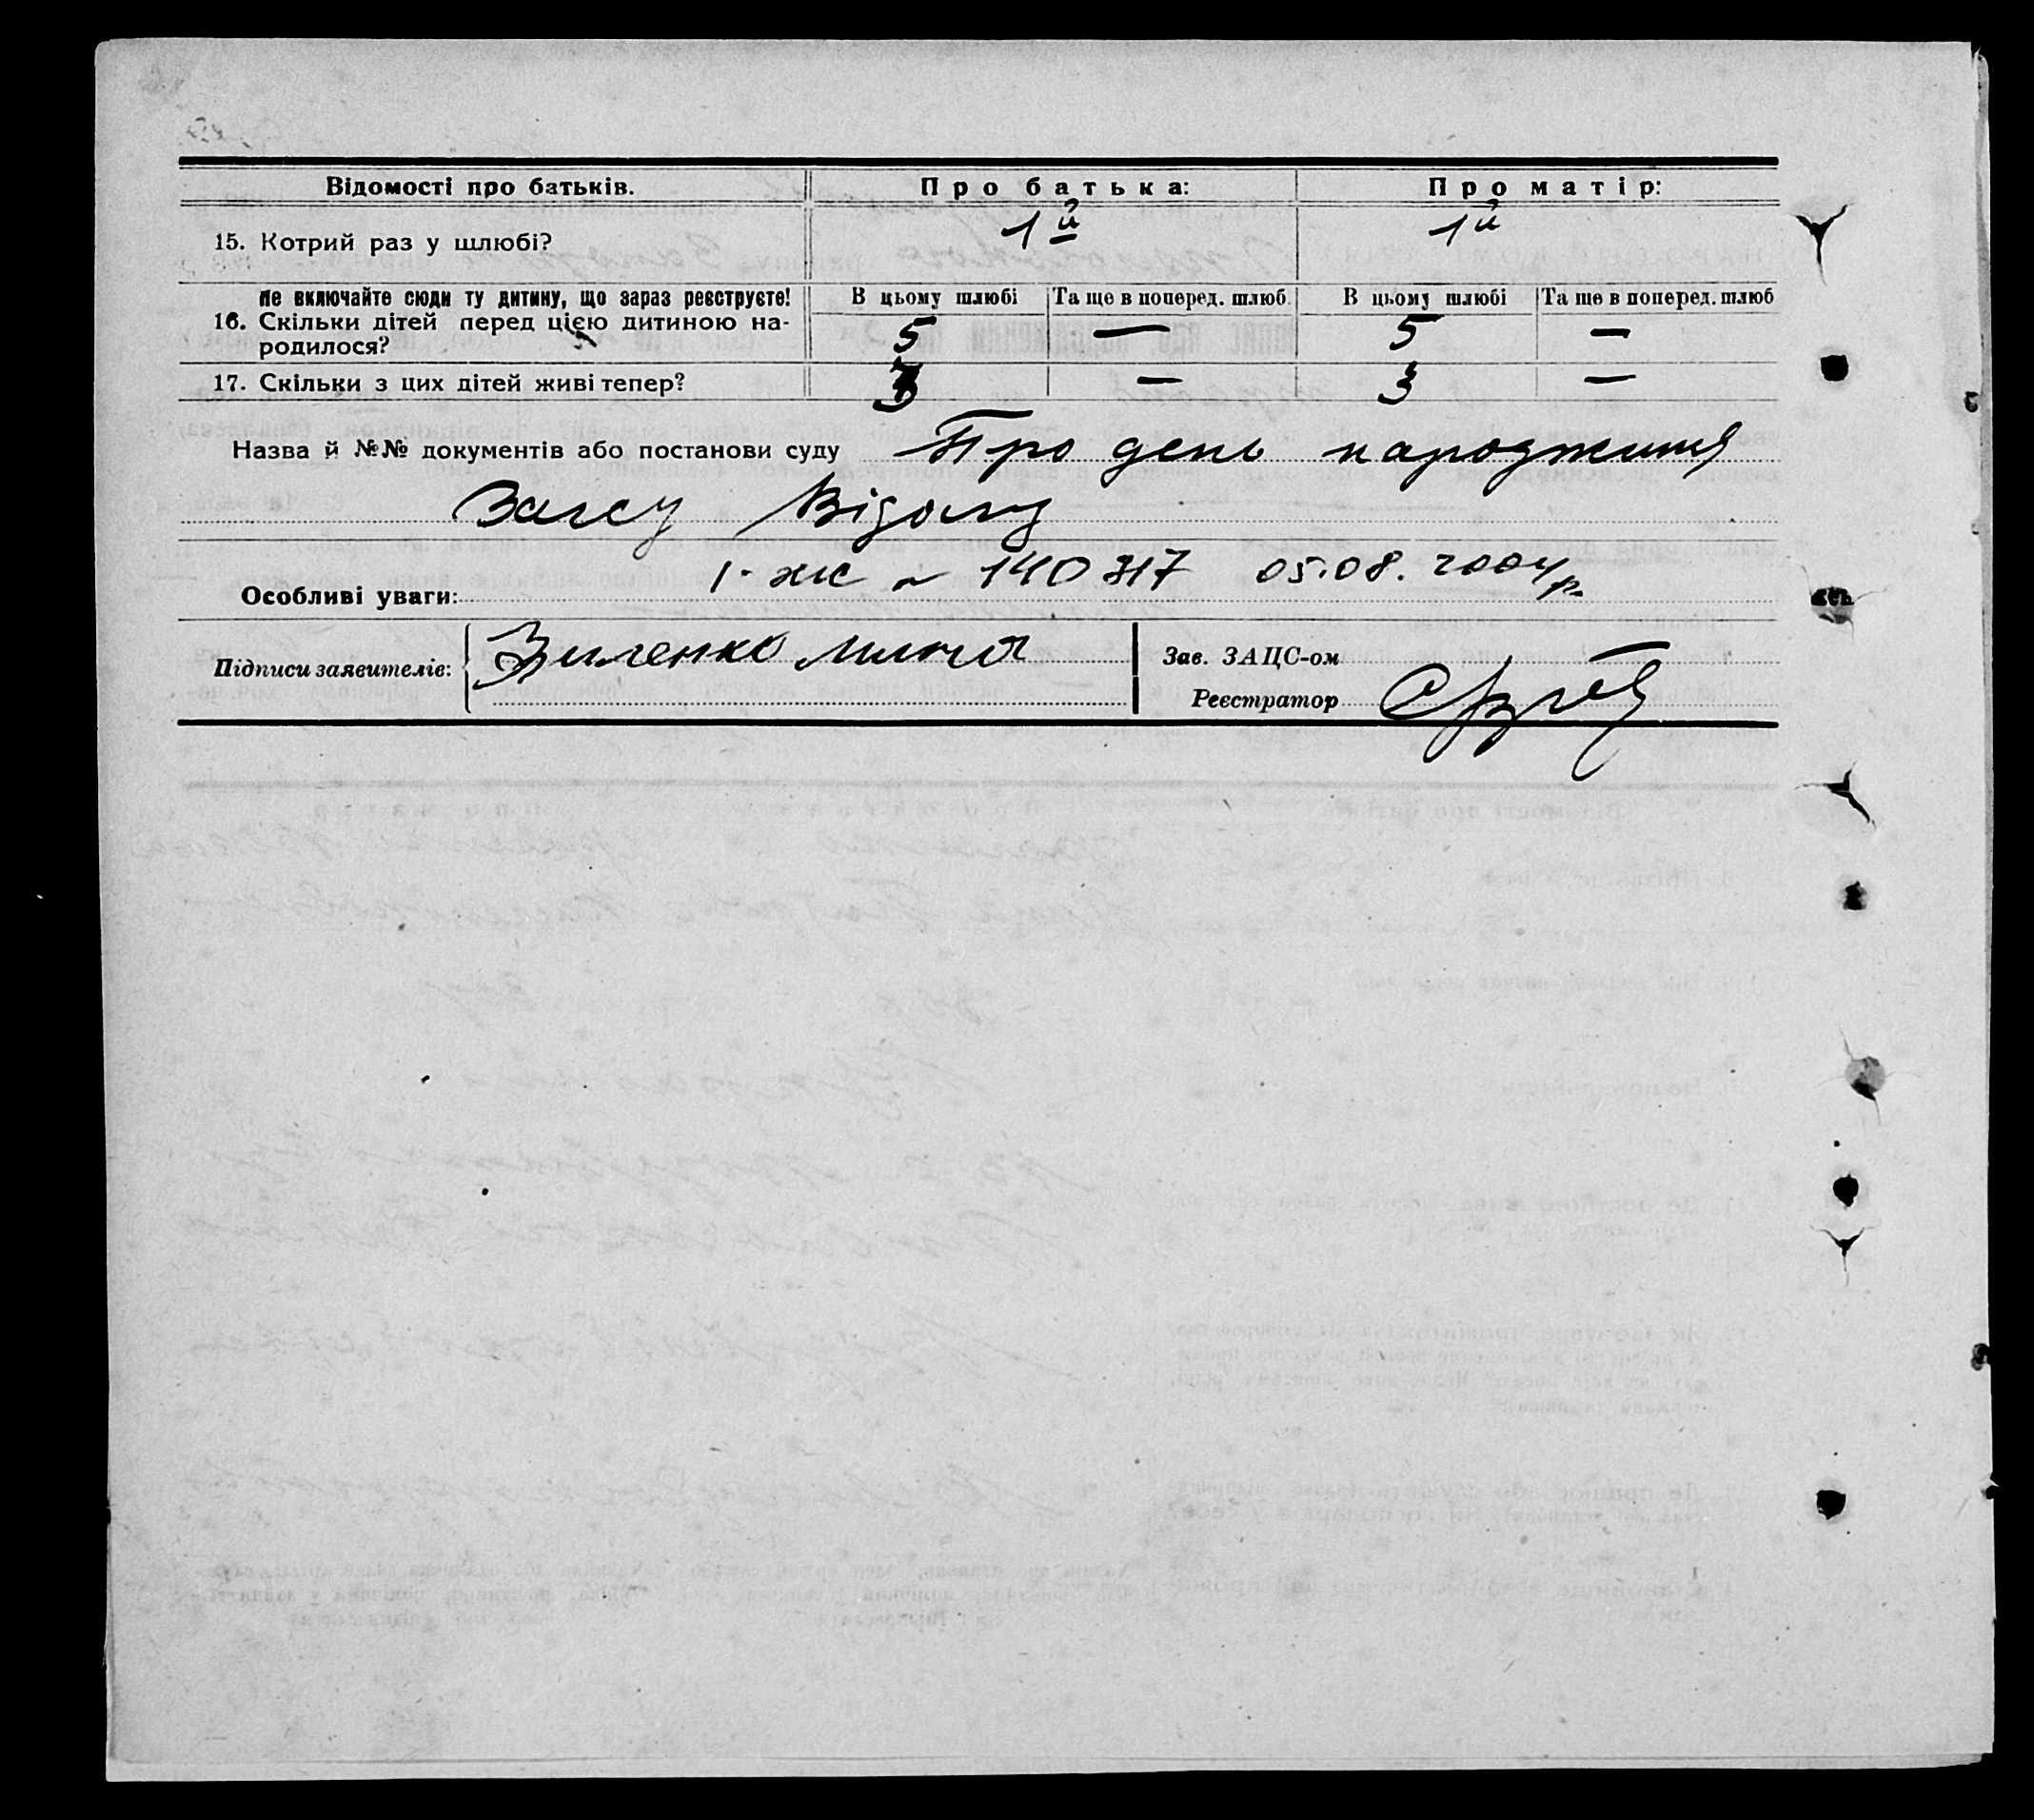 Відомості про батьків. Про батька: Про матір:
15. Котрий раз у шлюбі? 1й 1й
Не включайте сюди ту дитину, що зараз реєструєте! В цьому шлюбі Та ще в поперед. шлюб. В цьому шлюбі Та ще в поперед. шлюб
16. Скільки дітей перед цією дитиною на-
родилося? 5 — 5 —
17. Скільки з цих дітей живі тепер? 3 — 3 —
Назва й №№ документів або постанови суду Про день народження
Загсу Відому
Особливі уваги: І-жс ~ 140317 05.08. 2004р.
Підписи заявителів: Зиленко Зав. ЗАЦС-ом
Реєстратор